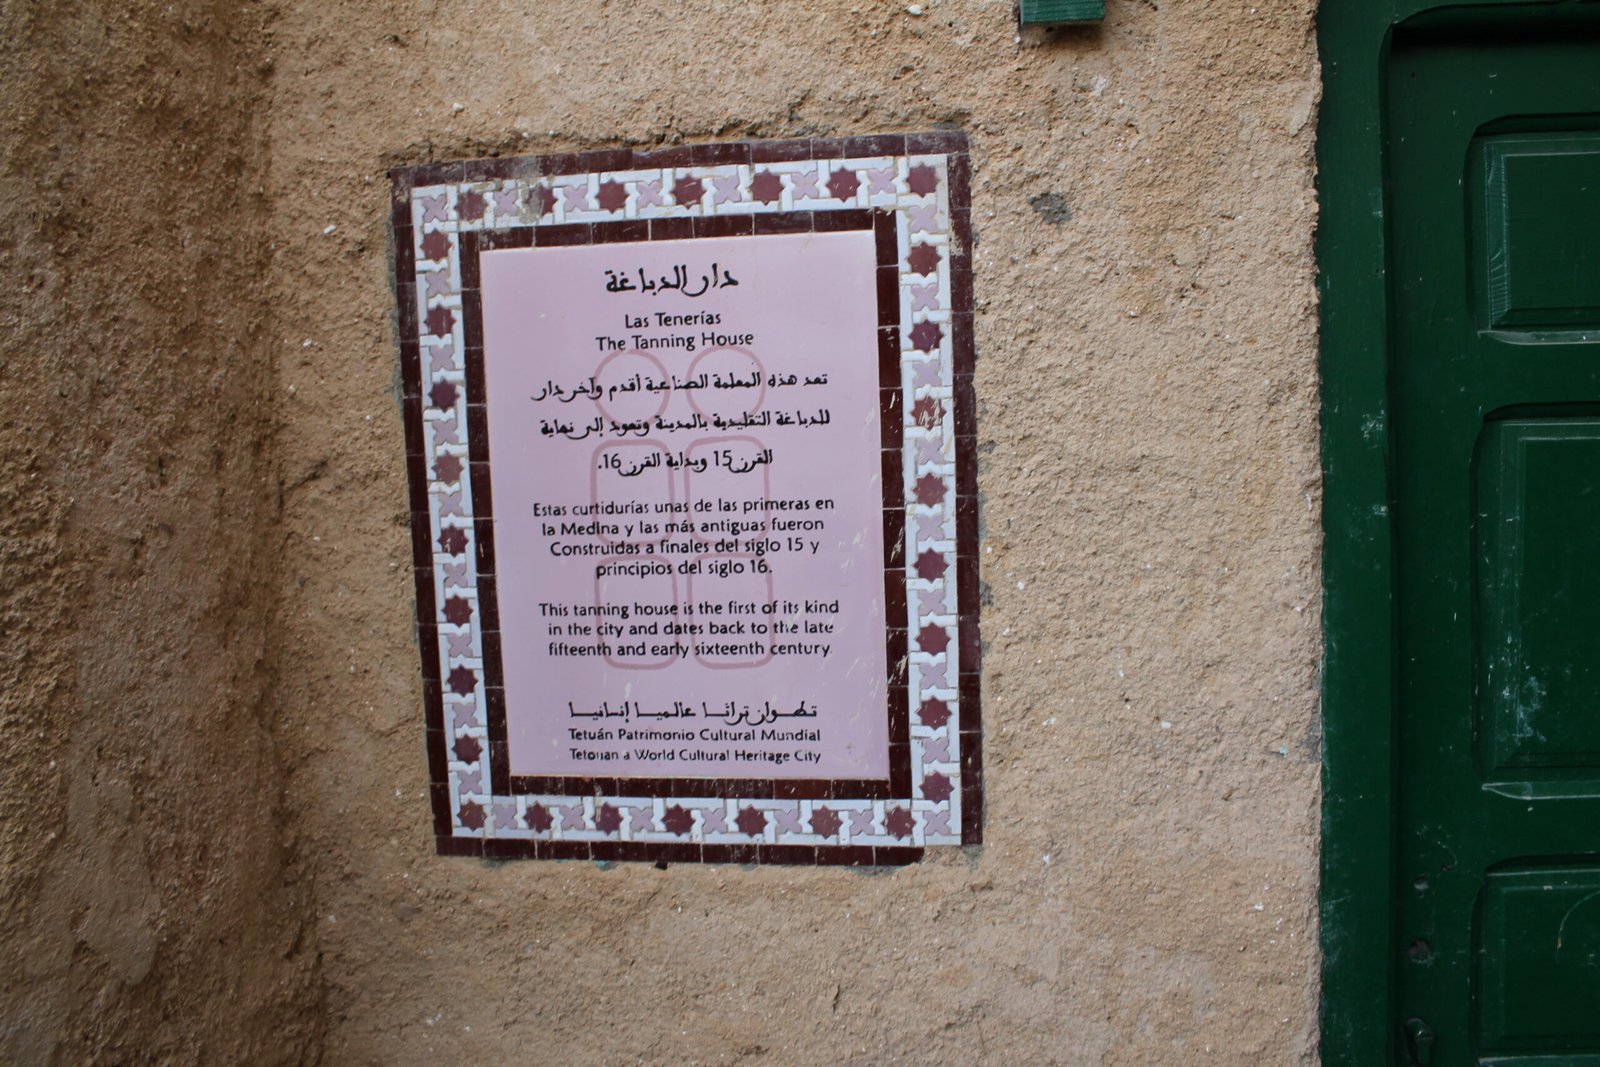 دار الدباغة
Las Tenerías
The Tanning House
تعد هذه المعلمة الصناعية أقدم وآخر دار
للدباغة التقليدية بالمدينة وتعود إلى نهاية
القرن 15 وبداية القرن 16.
Estas curtidurías unas de las primeras en
la Medina y las más antiguas fueron
Construidas a finales del siglo 15 y
principios del siglo 16.
This tanning house is the first of its kind
in the city and dates back to the late
fifteenth and early sixteenth century.
تطوان تراثا عالميا إنسانيا
Tetuán Patrimonio Cultural Mundial
Tetouan a World Cultural Heritage City